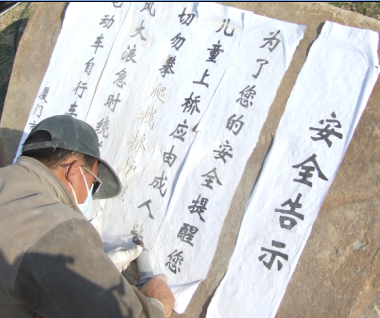 安全告示
为了您的安全提醒您
儿童上桥应由成人
切勿攀爬
风大浪急时
动车自行车
厦门